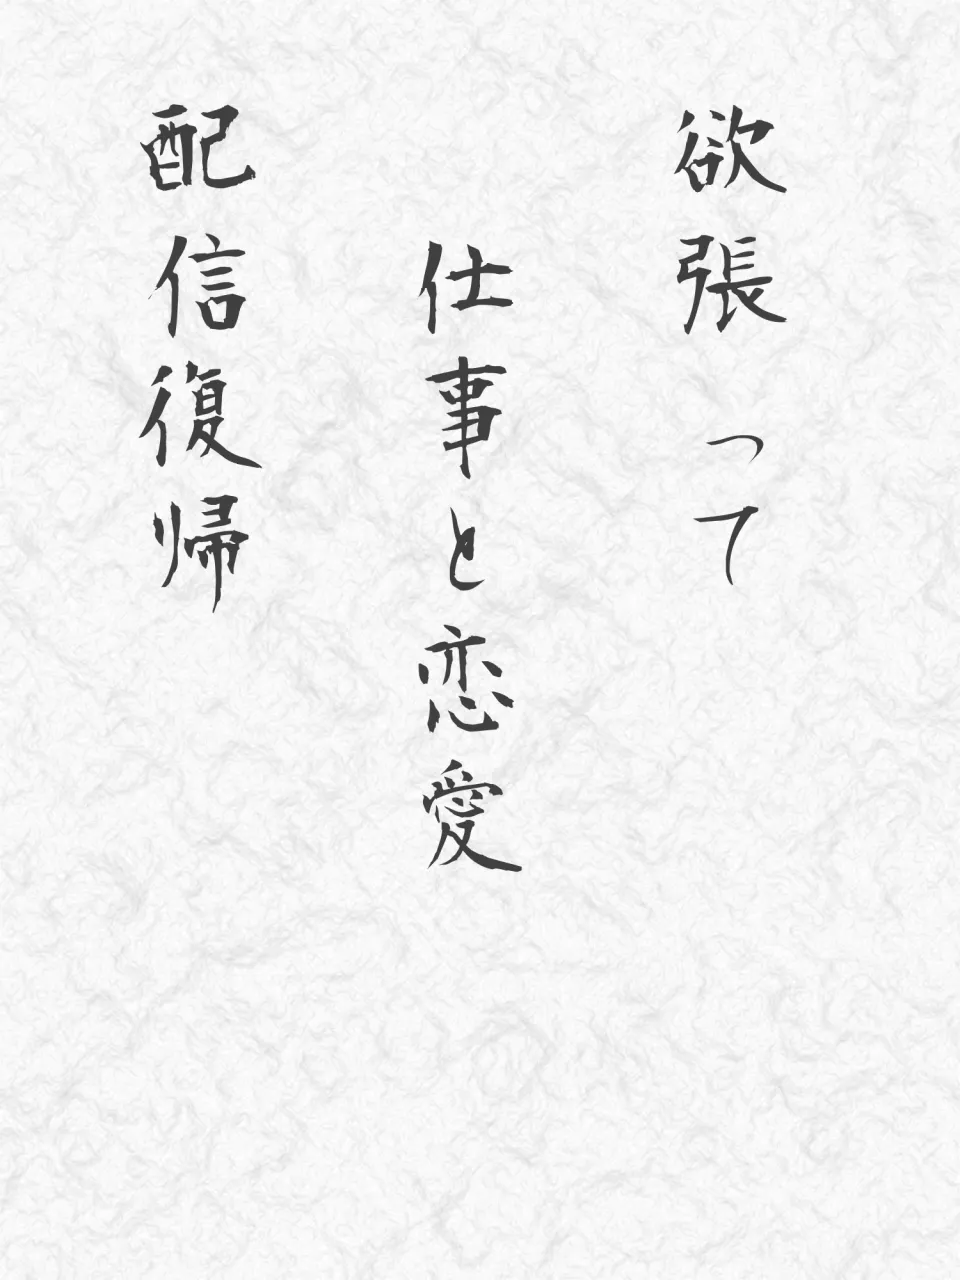 欲張って
仕事と恋愛
配信復帰